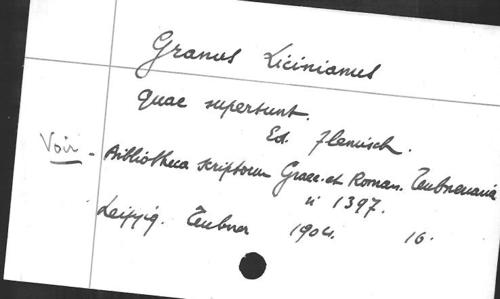 Granus Licinianus
quae supersunt.
Ed. Flemisch.
Voir - Bibliotheca scriptorum Graec. et Roman. Teubneriana
n° 1397.
Leipzig. Teubner 1904. 16.